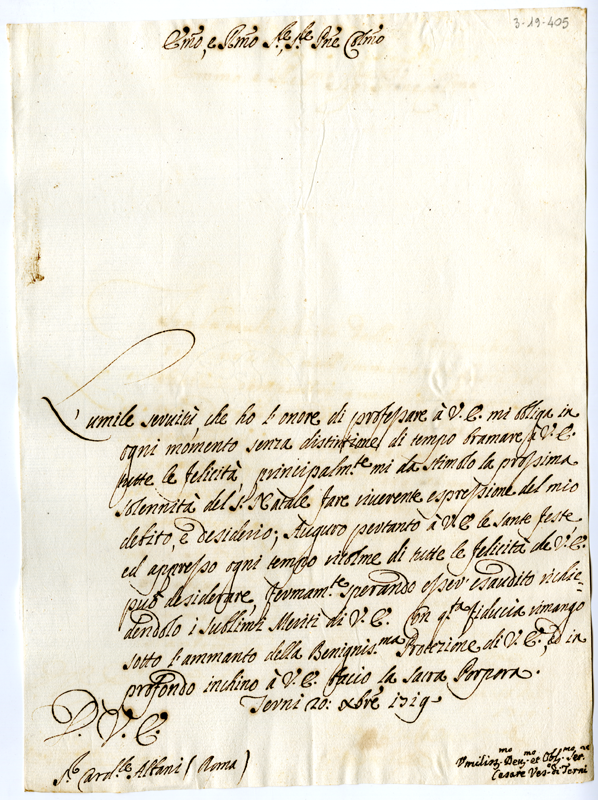 3-19-405
Emo, e Rmo Sre, Sre Pne Colmo
L'umile servitù, che ho l'onore di professare à V. E. mi obliga in
ogni momento senza distinzione di tempo bramare à V. E.
tutte le felicità, principalmte mi da stimolo la prossima
solennità del S. Natale fare riverente espressione del mio
debito, e desiderio; Auguro pertanto à V. E. le sante feste
ed appresso ogni tempo ricolme di tutte le felicità che V. E.
può desiderare, fermamte sperando esser esaudito richie-
dendolo i sublimi Meriti di V. E. Con qta fiducia rimango
sotto l'ammanto della Benignisma Protezione di V. E., ed in
profondo inchino à V. E. bacio la Sacra Porpora.
Terni 20: Xbre 1719
D. V. E.
Sr Cardle Albani (Roma)
Umilismo Devmo et Oblmo Serre
Cesare Veso di Terni